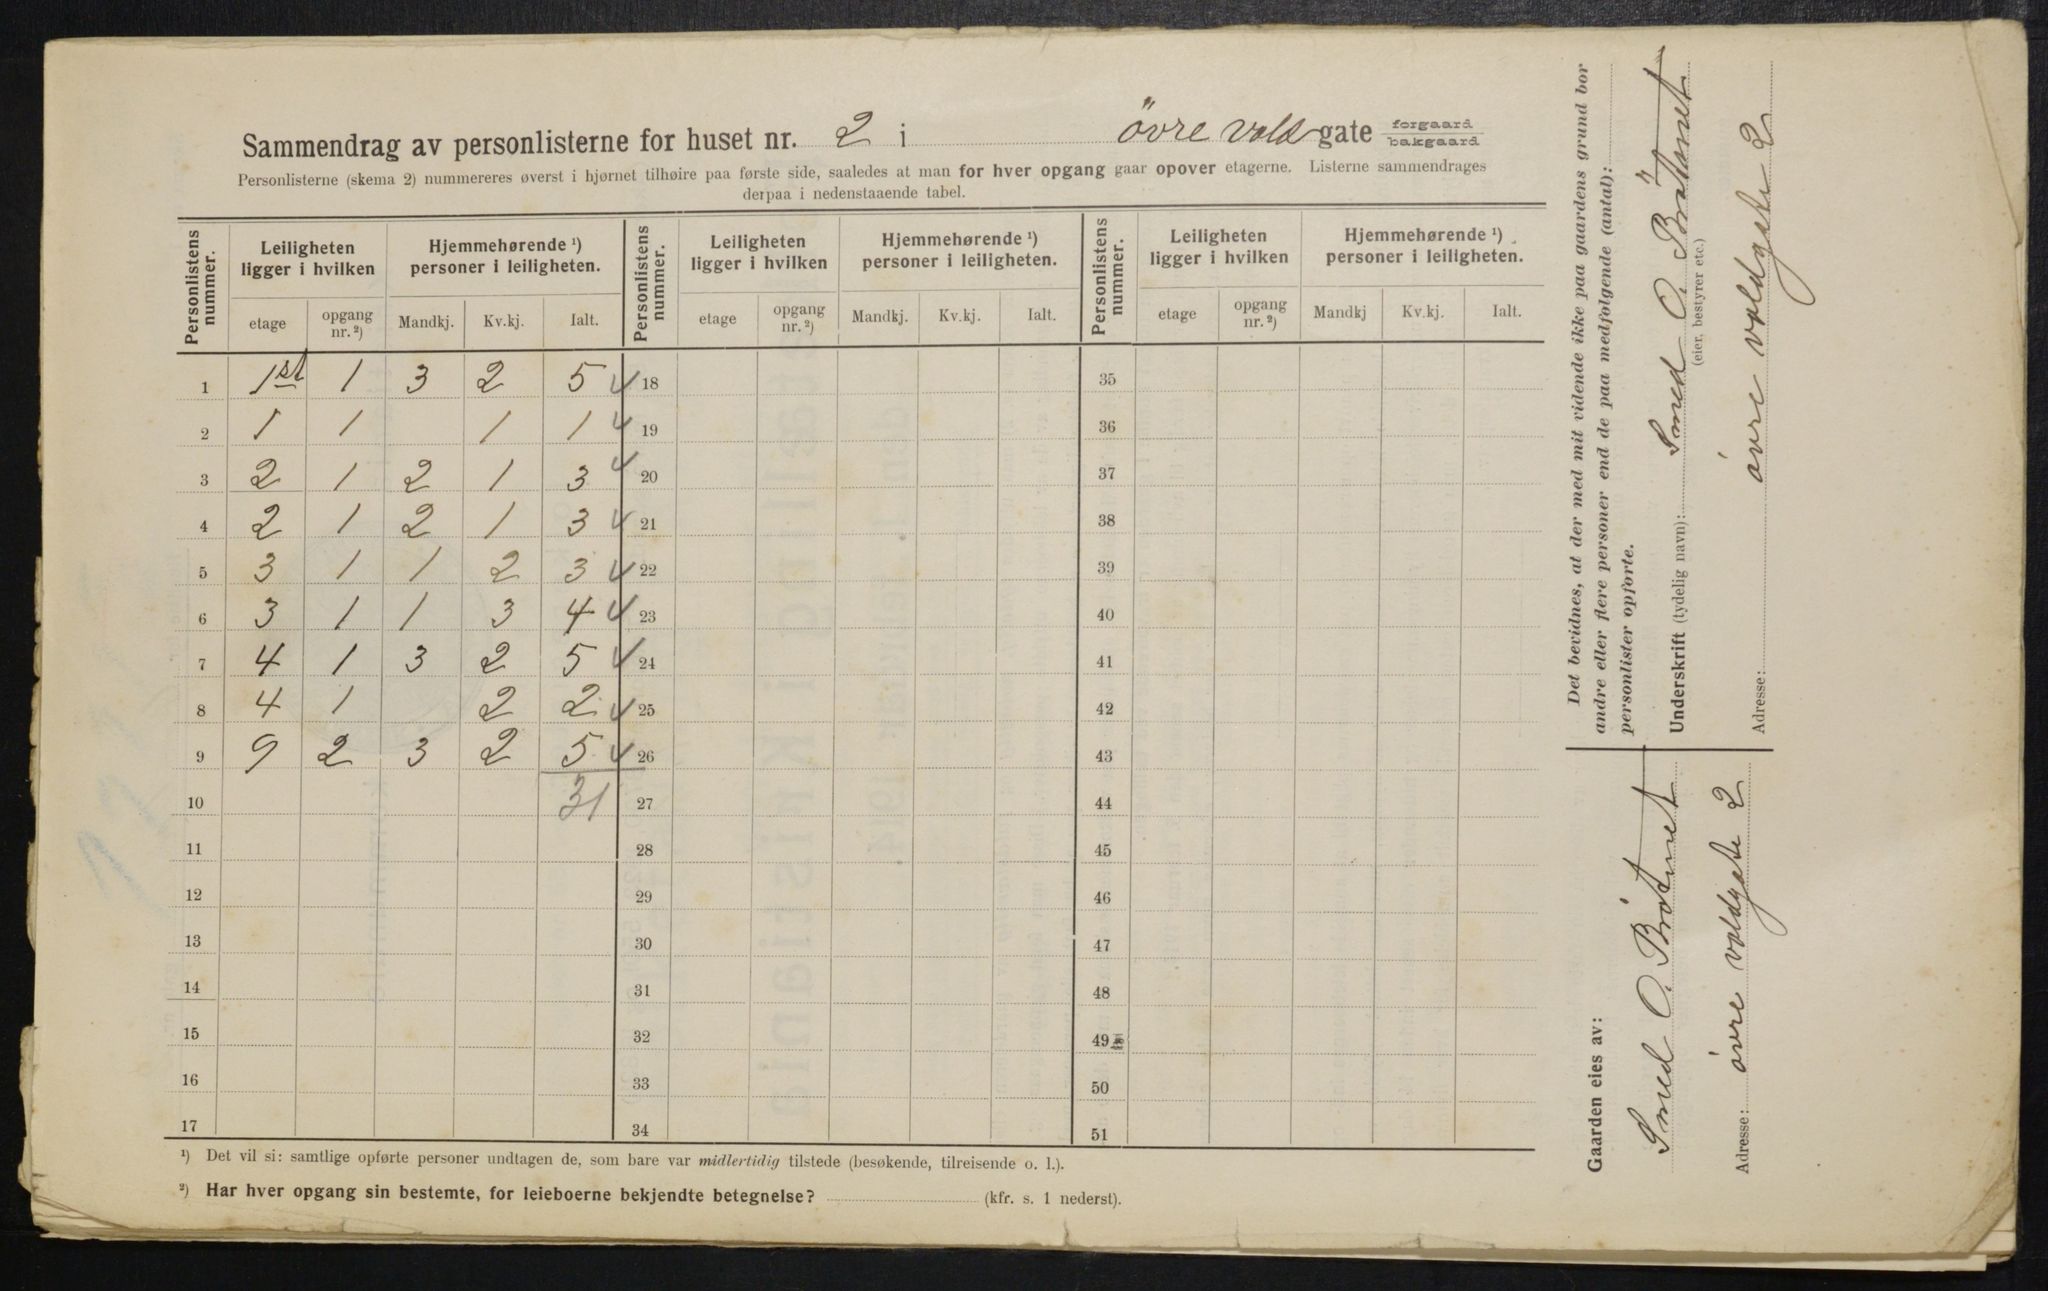 Sammendrag av personlisterne for huset nr. 2 i övre vold gate forgaard bakgaard
Personlisterne (skema 2) nummereres øverst i hjørnet tilhøire paa første side, saaledes at man for hver opgang gaar opover etagerne. Listerne sammendrages
derpaa i nedenstaaende tabel.
Personlistens nummer. Leiligheten ligger i hvilken Hjemmehørende ¹) personer i leiligheten. Personlistens nummer. Leiligheten ligger i hvilken Hjemmehørende ¹) personer i leiligheten. Personlistens nummer. Leiligheten ligger i hvilken Hjemmehørende ¹) personer i leiligheten.
etage opgang nr. ²) Mandkj. Kv.kj. Ialt. etage opgang nr. ²) Mandkj. Kv.kj. Ialt. etage opgang nr. ²) Mandkj Kv.kj. Ialt.
1 1st 1 3 2 5 18 35
2 1 1 1 1 19 36
3 2 1 2 1 3 20 37
4 2 1 2 1 3 21 38
5 3 1 1 2 3 22 39
6 3 1 1 3 4 23 40
7 4 1 3 2 5 24 41
8 4 1 2 2 25 42
9 9 2 3 2 5 26 43
10 31 27 44
11 28 45
12 29 46
13 30 47
14 31 48
15 32 49
16 33 50
17 34 51
¹) Det vil si: samtlige opførte personer undtagen de, som bare var midlertidig tilstede (besøkende, tilreisende o. l.).
²) Har hver opgang sin bestemte, for leieboerne bekjendte betegnelse? (kfr. s. 1 nederst).
Det bevidnes, at der med mit vidende ikke paa gaardens grund bor
andre eller flere personer end de paa medfølgende (antal):
personlister opførte.
Underskrift (tydelig navn): Smed O.
(eier, bestyrer etc.)
Adresse: övre voldgate 2
Gaarden eies av:
Smed O.
Adresse: övre voldgate 2